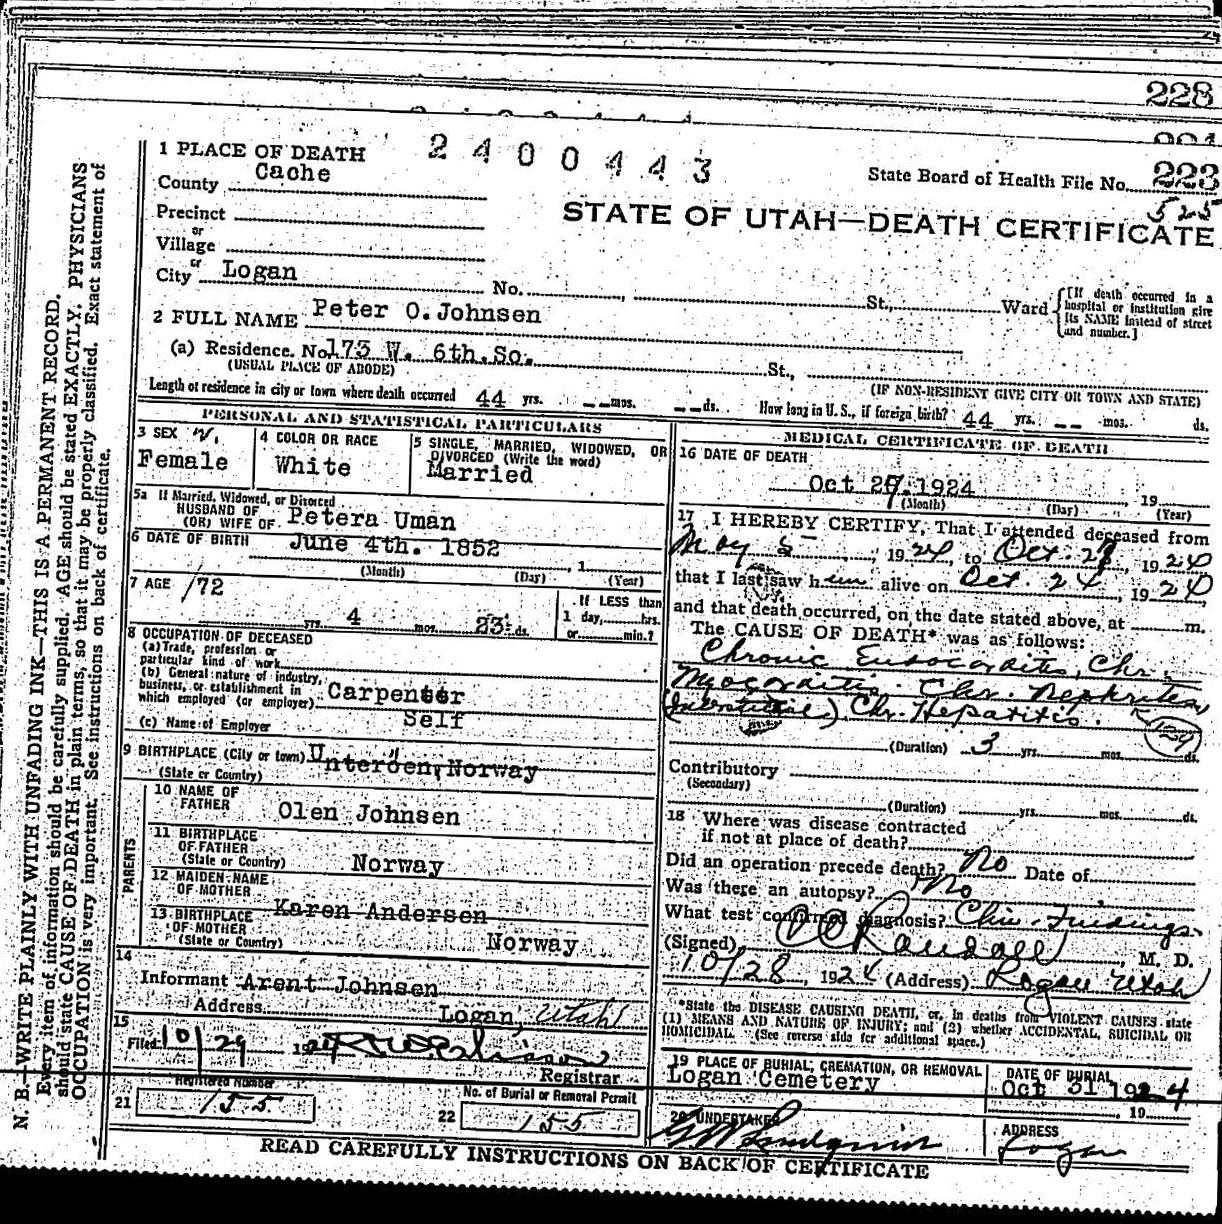 228
2400443
1 PLACE OF DEATH
County Cache
State Board of Health File No. 223
525
Precinct
or
Village
or
City Logan No. , St., Ward
[If death occurred in a hospital or institution give its NAME instead of street and number.]
STATE OF UTAH—DEATH CERTIFICATE
2 FULL NAME Peter O. Johnsen
(a) Residence. No 173 W. 6th. So. St.,
(USUAL PLACE OF ABODE)
(IF NON-RESIDENT GIVE CITY OR TOWN AND STATE)
Length of residence in city or town where death occurred 44 yrs. -- mos. -- ds. How long in U. S., if foreign birth? 44 yrs. -- mos. ds.
PERSONAL AND STATISTICAL PARTICULARS
3 SEX
Female
4 COLOR OR RACE
White
5 SINGLE, MARRIED, WIDOWED, OR DIVORCED (Write the word)
Married
5a If Married, Widowed, or Divorced
HUSBAND OF
(OR) WIFE OF Petera Uman
6 DATE OF BIRTH June 4th. 1852 , 1
(Month) (Day) (Year)
7 AGE 72
yrs. 4 mos. 23 ds.
If LESS than
1 day, hrs.
or min.?
8 OCCUPATION OF DECEASED
(a) Trade, profession or
particular kind of work
(b) General nature of industry,
business, or establishment in
which employed (or employer) Carpenter
(c) Name of Employer Self
9 BIRTHPLACE (City or town) Unteröen, Norway
(State or Country)
PARENTS
10 NAME OF
FATHER Olen Johnsen
11 BIRTHPLACE
OF FATHER
(State or Country) Norway
12 MAIDEN NAME
OF MOTHER Karen Andersen
13 BIRTHPLACE
OF MOTHER
(State or Country) Norway
14
Informant Arent Johnsen
Address Logan, Utah
15
Filed 10/29 1924
Registrar
Registered Number
21 155
No. of Burial or Removal Permit
22 155
MEDICAL CERTIFICATE OF DEATH
16 DATE OF DEATH
Oct 27. 1924 19
(Month) (Day) (Year)
17 I HEREBY CERTIFY, That I attended deceased from
May 5 , 1924, to Oct. 27, 1924
that I last saw him alive on Oct. 24, 1924
and that death occurred, on the date stated above, at m.
The CAUSE OF DEATH* was as follows:
Chronic Endocarditis, Chr.
Myocarditis. Chr. Nephritis
(Interstitial) Chr. Hepatitis.
129
(Duration) 3 yrs. mos. ds.
Contributory
(Secondary)
(Duration) yrs. mos. ds.
18 Where was disease contracted
if not at place of death?
Did an operation precede death? No Date of
Was there an autopsy? No
What test confirmed diagnosis? Clin. Findings.
(Signed) Randall, M. D.
10/28, 1924 (Address) Logan Utah
*State the DISEASE CAUSING DEATH, or, in deaths from VIOLENT CAUSES state
(1) MEANS AND NATURE OF INJURY; and (2) whether ACCIDENTAL, SUICIDAL OR
HOMICIDAL. (See reverse side for additional space.)
19 PLACE OF BURIAL, CREMATION, OR REMOVAL
Logan Cemetery
DATE OF BURIAL
Oct 31 1924
, 19
20 UNDERTAKER
Lindquist
ADDRESS
Logan
READ CAREFULLY INSTRUCTIONS ON BACK OF CERTIFICATE
N. B.—WRITE PLAINLY WITH UNFADING INK—THIS IS A PERMANENT RECORD.
Every item of information should be carefully supplied. AGE should be stated EXACTLY. PHYSICIANS
should state CAUSE OF DEATH in plain terms, so that it may be properly classified. Exact statement of
OCCUPATION is very important. See instructions on back of certificate.